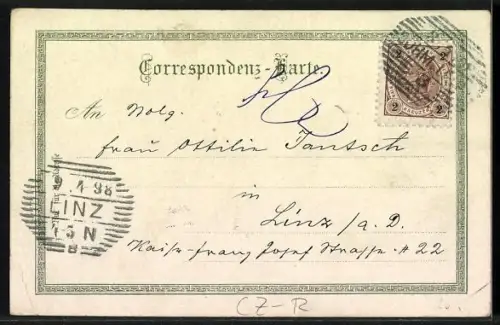 Correspondenz-Karte.
2 2
An Wolg.
Frau Ottilie Jantsch
in
Linz/a. D.
Kaiser-Franz Josef Strasse # 22
9. 4 98
LINZ
5 N
CZ-R